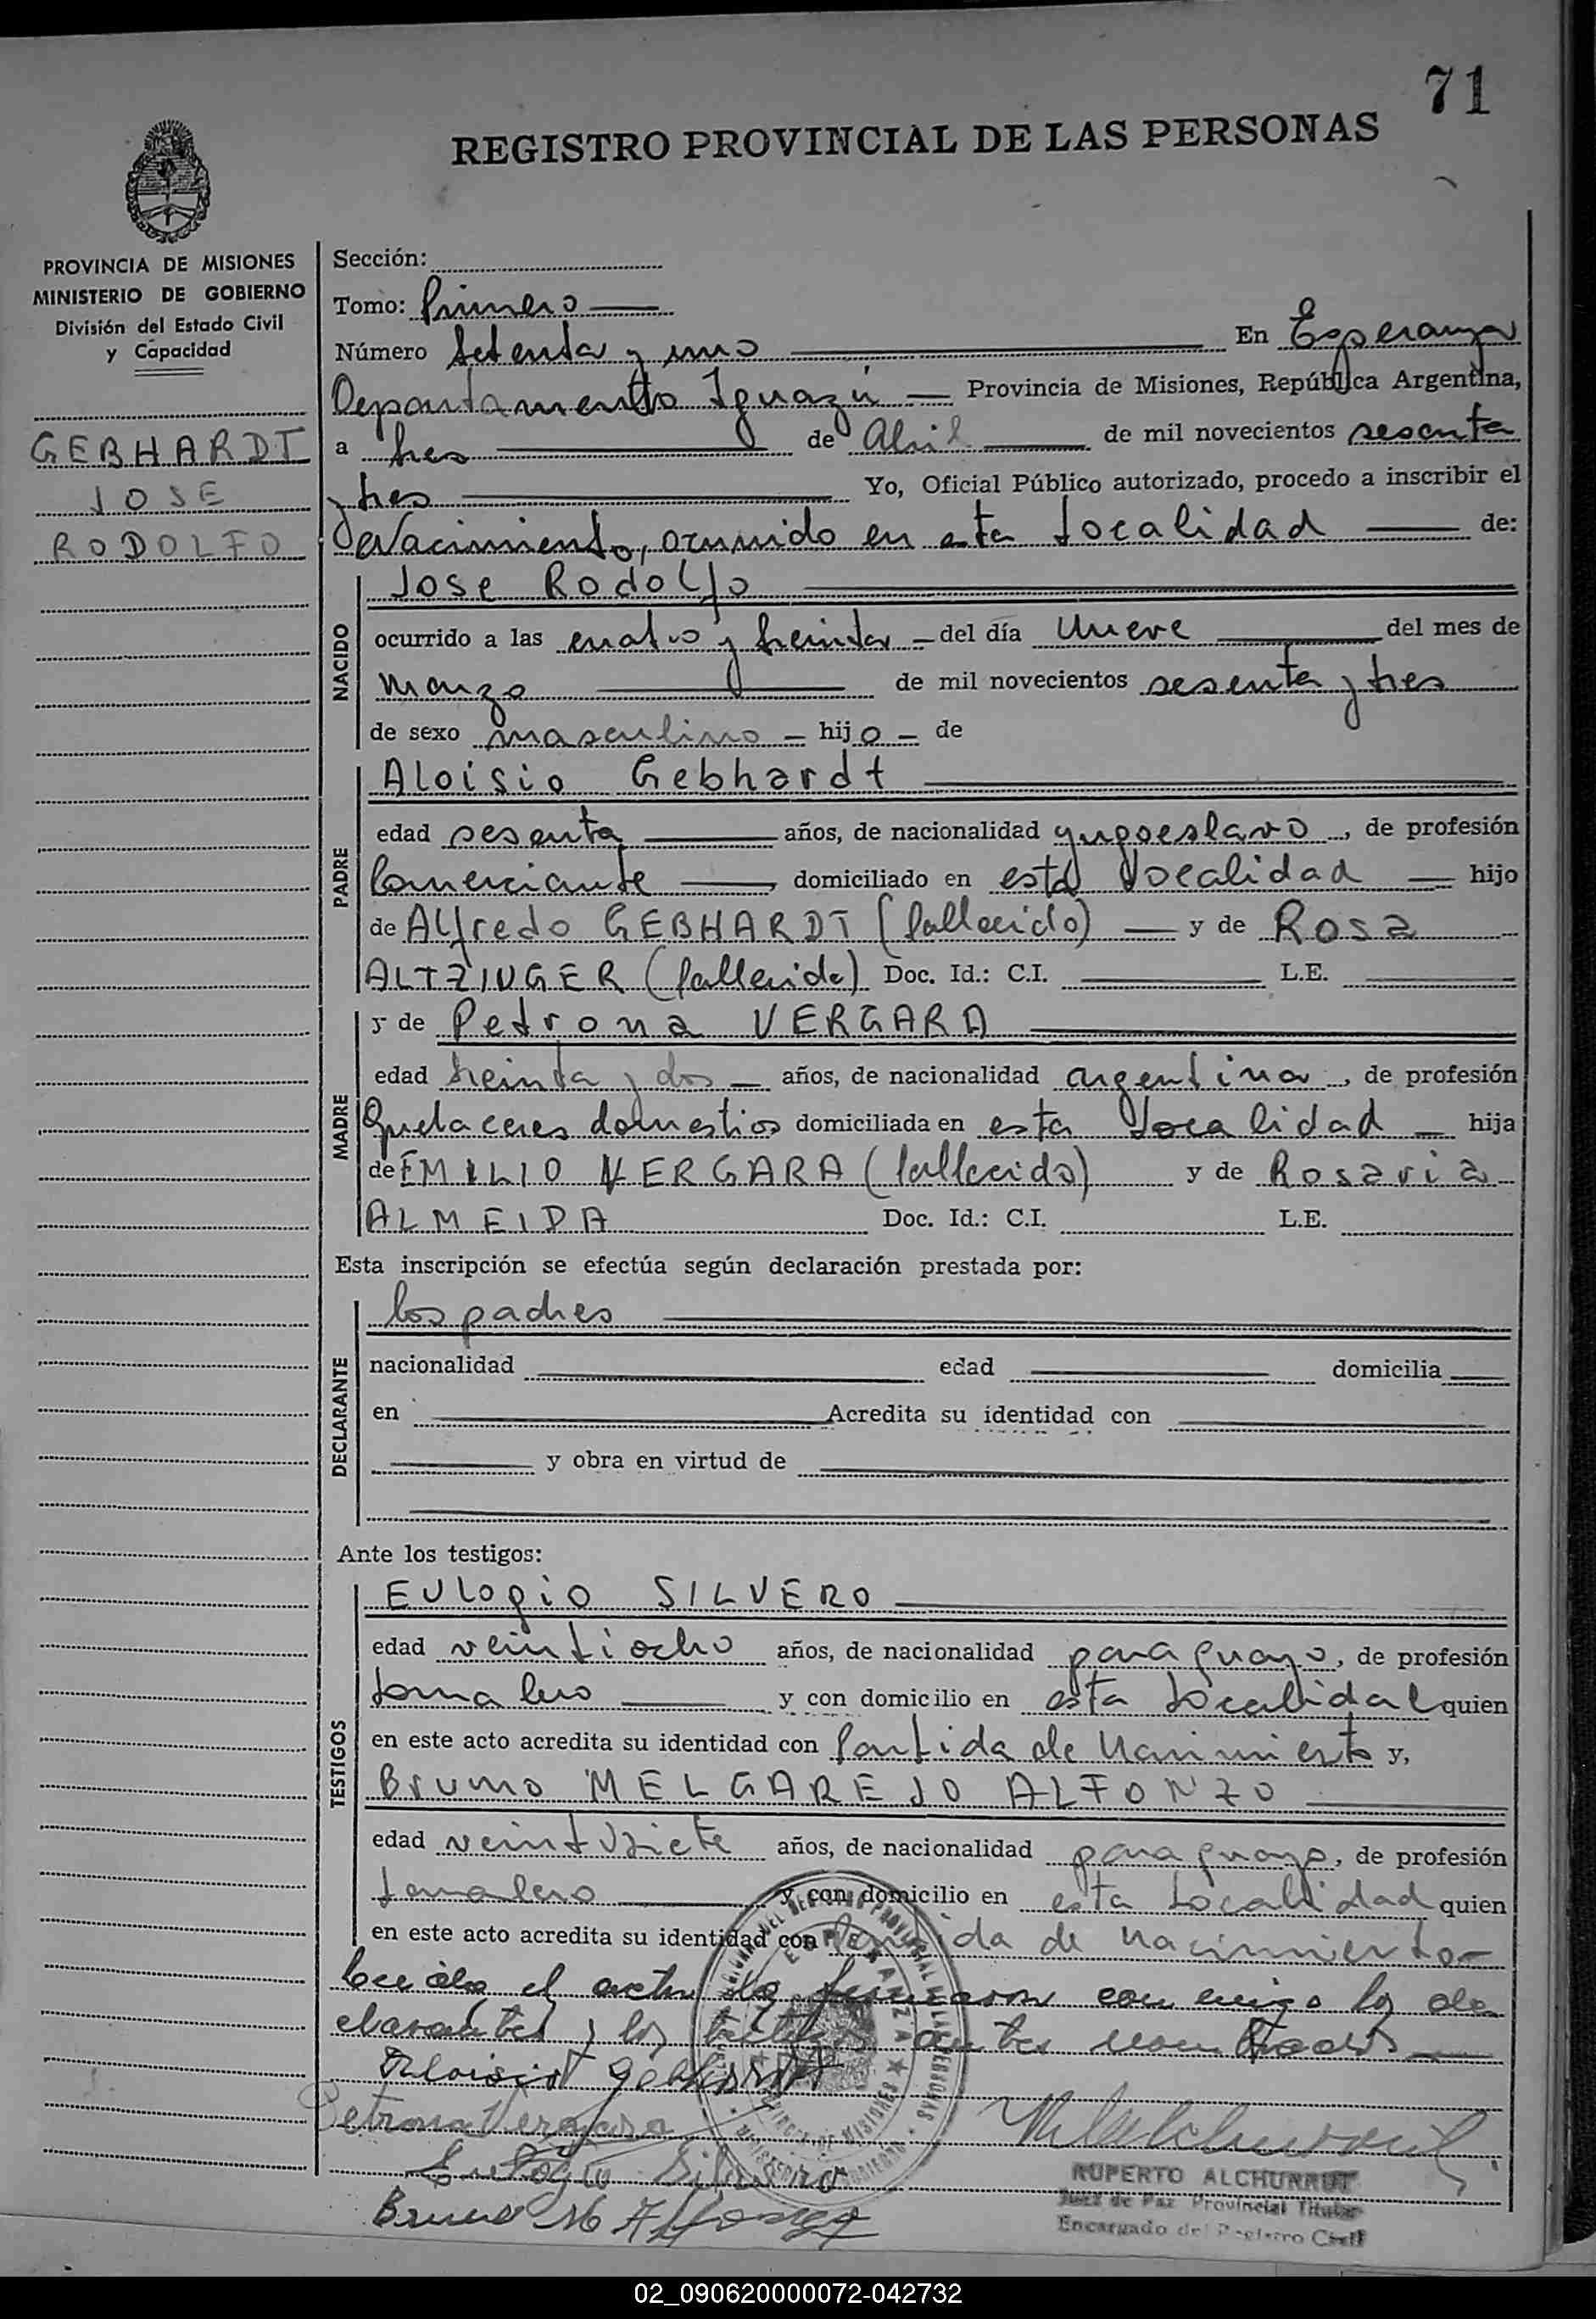 71
REGISTRO PROVINCIAL DE LAS PERSONAS
PROVINCIA DE MISIONES
MINISTERIO DE GOBIERNO
División del Estado Civil
y Capacidad
GEBHARDT
JOSE
RODOLFO
Sección:
Tomo: Primero
Número setenta y uno En Esperanza
Departamento Iguazú Provincia de Misiones, República Argentina,
a tres de Abril de mil novecientos sesenta
y tres Yo, Oficial Público autorizado, procedo a inscribir el
Nacimiento, ocurrido en esta Localidad de:
NACIDO
Jose Rodolfo
ocurrido a las cuatro y treinta del día Nueve del mes de
marzo de mil novecientos sesenta y tres
de sexo masculino hijo de
PADRE
Aloisio Gebhardt
edad sesenta años, de nacionalidad yugoeslavo, de profesión
Comerciante domiciliado en esta Localidad hijo
de Alfredo GEBHARDT (fallecido) y de Rosa
ALTZINGER (fallecida) Doc. Id.: C.I. L.E.
MADRE
y de Petrona VERGARA
edad treinta y dos años, de nacionalidad argentina, de profesión
Quehaceres domesticos domiciliada en esta Localidad hija
de EMILIO VERGARA (fallecido) y de Rosaria
ALMEIDA Doc. Id.: C.I. L.E.
Esta inscripción se efectúa según declaración prestada por:
DECLARANTE
los padres
nacionalidad edad domicilia
en Acredita su identidad con
y obra en virtud de
Ante los testigos:
TESTIGOS
Eulogio SILVERO
edad veintiocho años, de nacionalidad paraguayo, de profesión
Jornalero y con domicilio en esta Localidad quien
en este acto acredita su identidad con Partida de Nacimiento y,
Bruno MELGAREJO ALFONZO
edad veintisiete años, de nacionalidad paraguayo, de profesión
Jornalero y con domicilio en esta Localidad quien
en este acto acredita su identidad con Partida de Nacimiento
Leida el acta la firmaron conmigo los de
clarantes y los testigos antes nombrados
Aloisio Gebhardt
Petrona Vergara
Eulogio Silvero
Bruno M Alfonzo
ESPERANZA
PROVINCIA DE MISIONES
RUPERTO ALCHURRUT
Juez de Paz Provincial Titular
Encargado del Registro Civil
02_090620000072-042732